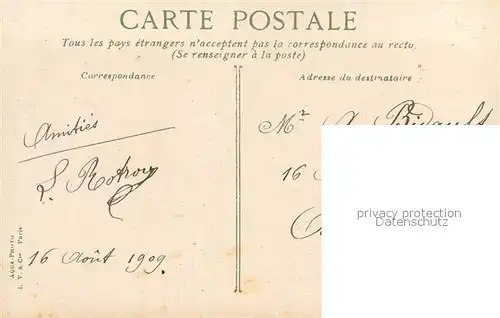 CARTE POSTALE
Tous les pays étrangers n'acceptent pas la correspondance au recto.
(Se renseigner à la poste)
Correspondance
Adresse du destinataire
Amitiés
16 Août 1909
Mr
16
privacy protection
Datenschutz
AQUA-PHOTO
L. V. & Cie Paris